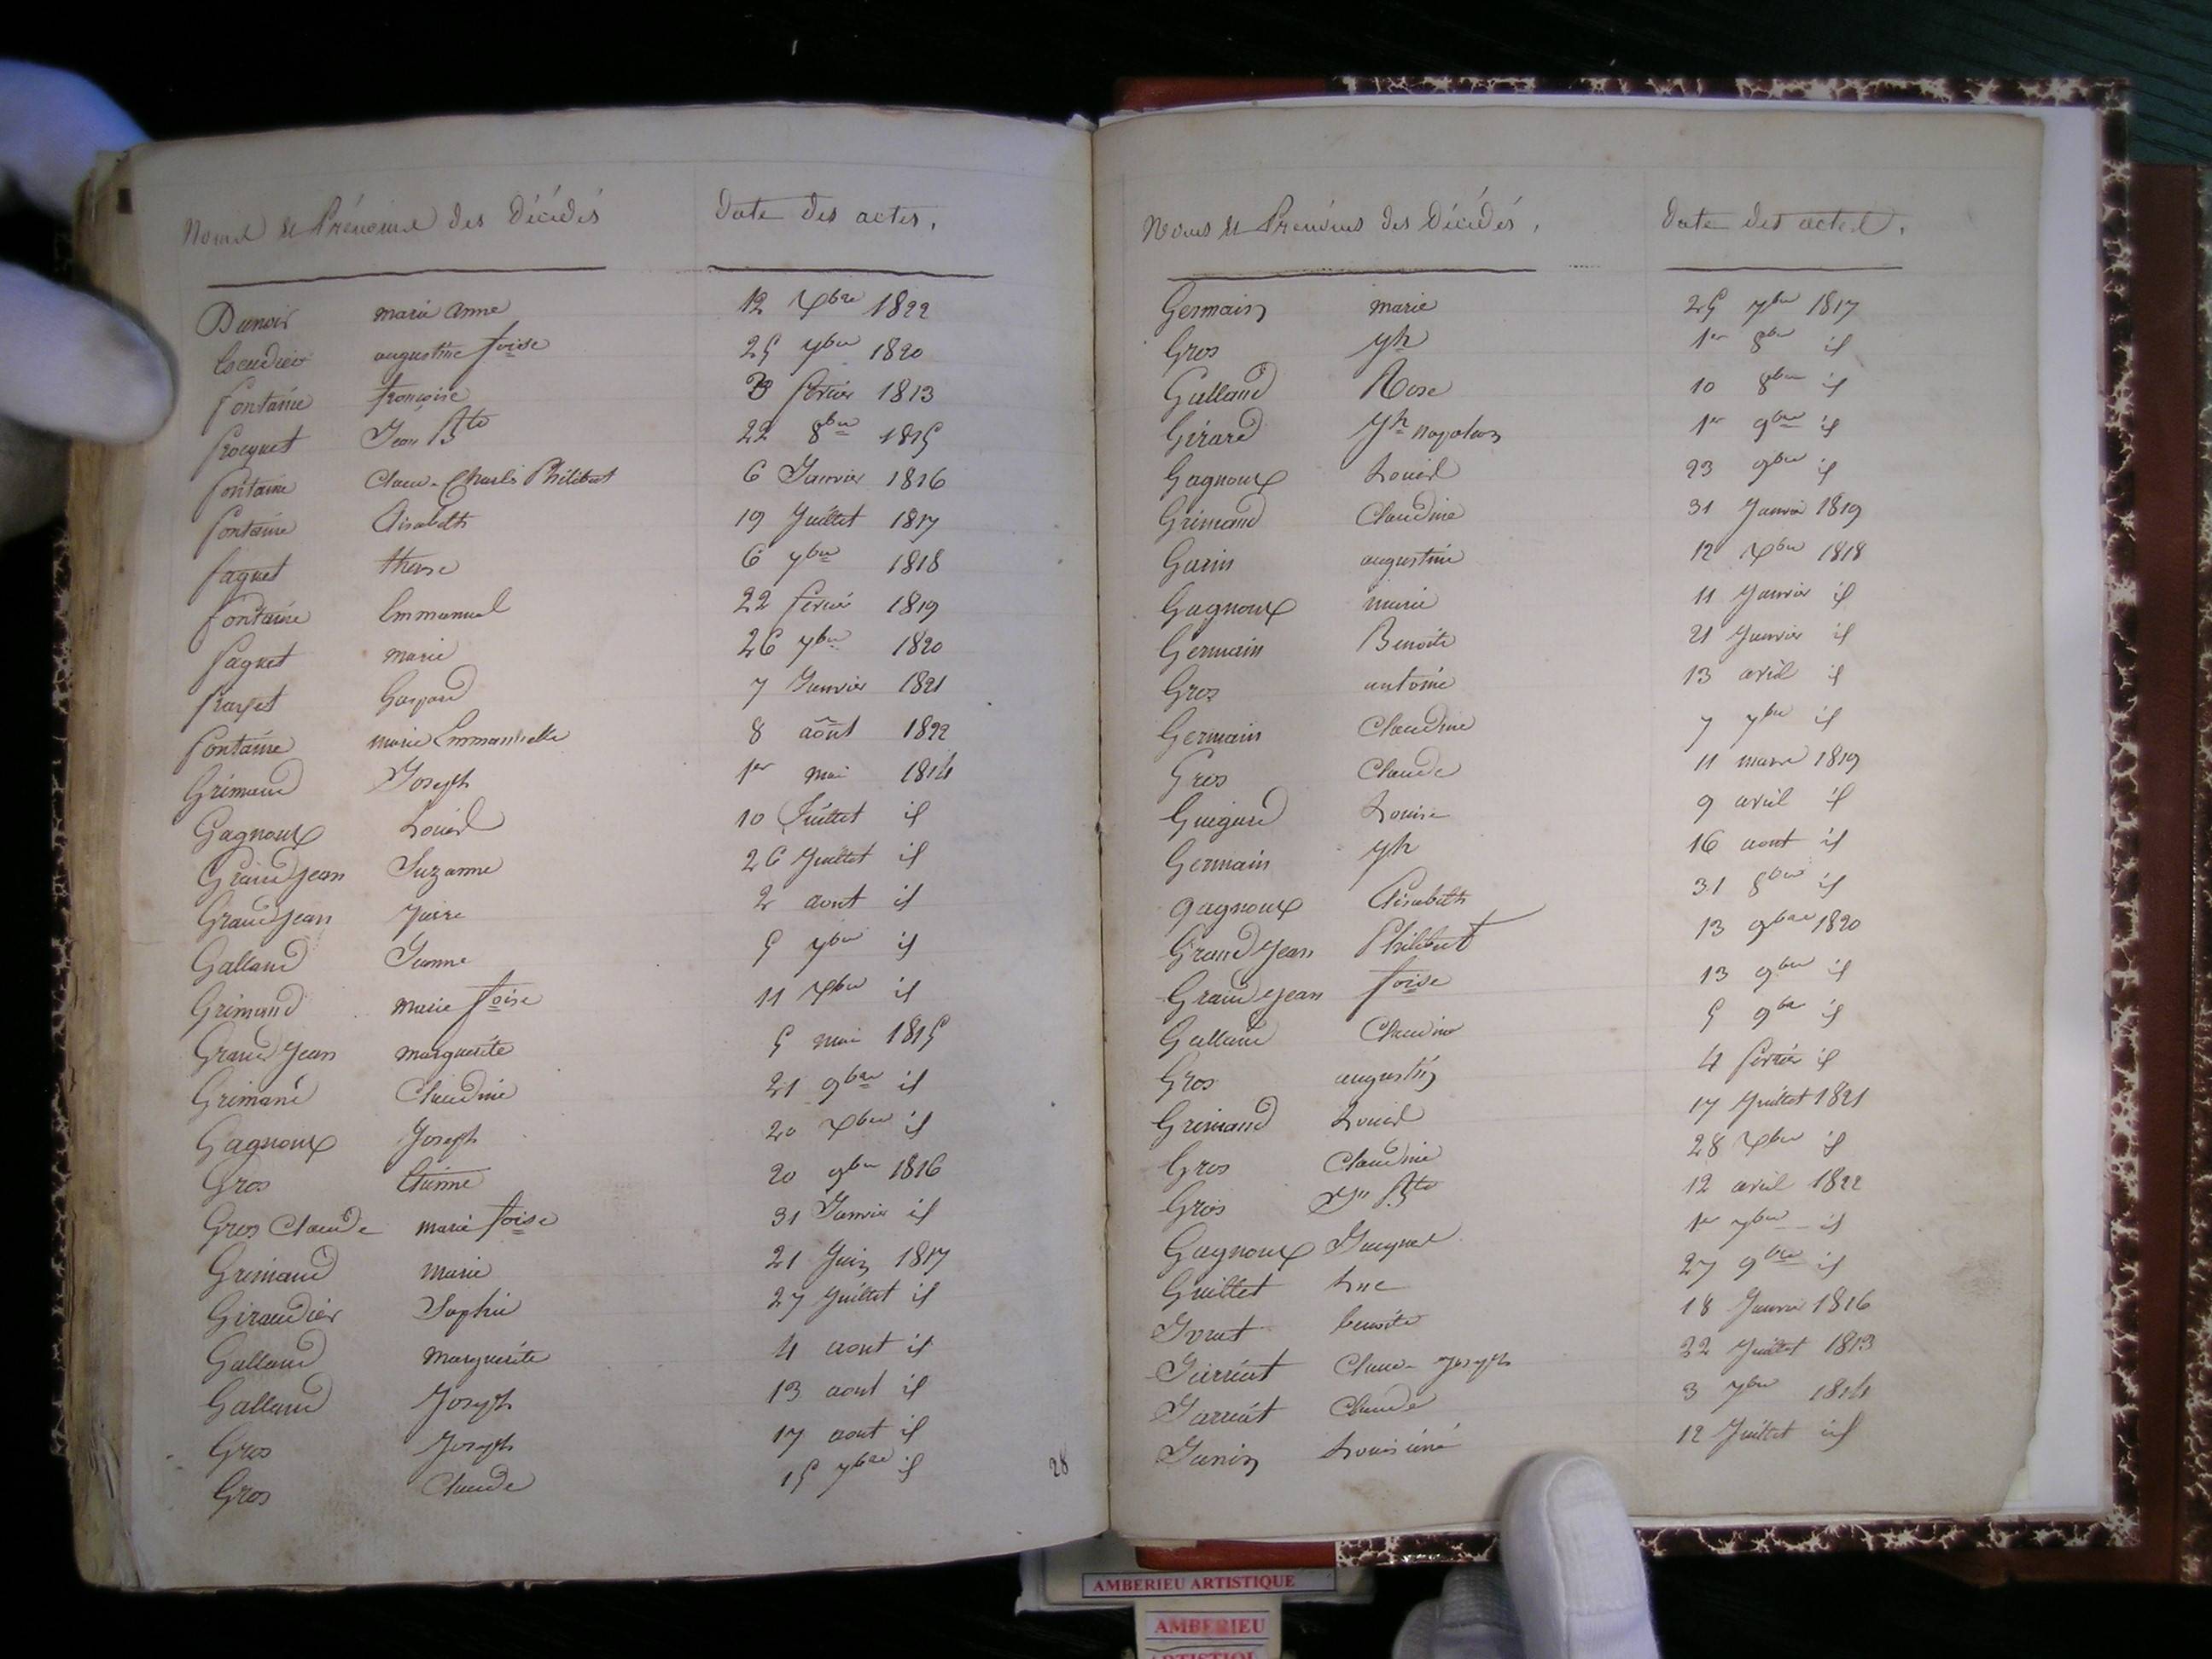 Noms et Prénoms des Décédés Date des actes.
Dunoir marie anne 12 Xbre 1822
augustine foise 25 7bre 1820
fontaine francoise février 1813
frocquet Jean Bte 22 8bre 1815
fontaine Claude Charles Philibert 6 Janvier 1816
fontaine Elisabeth 19 Juillet 1817
faguet therese 6 7bre 1818
fontaine Emmanuel 22 fevrier 1819
faguet marie 26 7bre 1820
Gaspard 7 Janvier 1821
fontaine marie Emmanuelle 8 août 1822
Grimaud Joseph 1er mai 1814
Gagnoux Louis 10 Juillet id
Grand jean Suzanne 26 Juillet id
Grand jean 2 aout id
Galland Jeanne 5 7bre id
Grimaud marie foise 11 Xbre id
Grand Jean marguerite 5 mai 1815
Grimand Claudine 21 9bre id
Gagnoux Joseph 20 Xbre id
Gros Etienne 20 9bre 1816
Gros Claude marie foise 31 Janvier id
Grimaud marie 21 Juin 1817
Giraudier Sophie 27 Juillet id
Galland Marguerite 4 aout id
Galland Joseph 13 aout id
Gros Joseph 17 aout id
Gros Claude 15 7bre id
28
Noms et Prénoms des Décédés, Date des actes.
Germain marie 25 7bre 1817
Gros jh 1er 8bre id
Galland Rose 10 8bre id
Girard Jh napoleon 1er 9bre id
Gagnoux Louis 23 9bre id
Grimaud Claudine 31 Janvier 1819
Garin augustine 12 Xbre 1818
Gagnoux marie 11 Janvier id
Germain Benoite 21 Janvier id
Gros antoine 13 avril id
Germain Claudine 7 7bre id
Gros Claude 11 mars 1819
Guigard Louise 9 avril id
Germain jh 16 aout id
gagnoux Elisabeth 31 8bre id
Grand Jean Philibert 13 9bre 1820
Grand jean foise 13 9bre id
Galland Claudine 5 9bre id
Gros augustin 4 février id
Grimaud Louis 17 Juillet 1821
Gros Claudine 28 Xbre id
Gros Jn Bte 12 avril 1822
Gagnoux Jacques 1er 7bre id
Guillet Luc 27 9bre id
benoite 18 Janvier 1816
Jarriat Claude Joseph 22 Juillet 1813
Jarriat Claude 3 7bre 1814
Janin Louis 12 Juillet id
AMBERIEU ARTISTIQUE
AMBERIEU
ARTISTIQUE